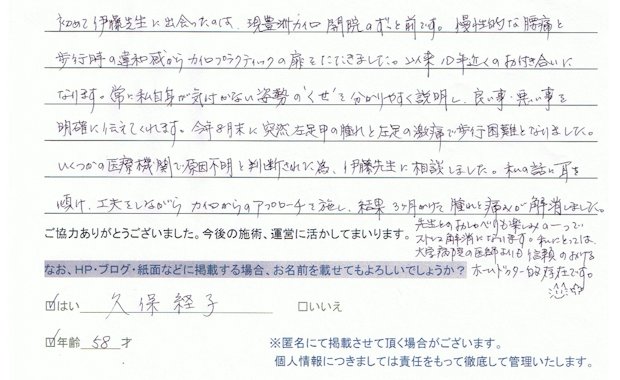 初めて伊藤先生に出会ったのは、現豊洲カイロ開院のずっと前です。慢性的な腰痛と
歩行時の違和感からカイロプラクティックの扉をたたきました。以来10年近くのお付き合いに
なります。常に私自身が気付かない姿勢の"くせ"を分かりやすく説明し、良い事・悪い事を
明確に伝えてくれます。今年8月末に突然左足甲の腫れと左足の激痛で歩行困難となりました。
いくつかの医療機関で原因不明と判断された為、伊藤先生に相談しました。私の話に耳を
傾け、工夫をしながらカイロからのアプローチを施し、結果3ヶ月かけて腫れと痛みが解消しました。
先生とのおしゃべりも楽しみの一つで
ご協力ありがとうございました。今後の施術、運営に活かしてまいります。
ストレス解消になります。私にとっては、
大学病院の医師よりも信頼のおける
なお、HP・ブログ・紙面などに掲載する場合、お名前を載せてもよろしいでしょうか?
ホームドクター的存在です。
☑はい 久保経子 □いいえ
☑年齢 58 才
※匿名にて掲載させて頂く場合がございます。
個人情報につきましては責任をもって徹底して管理いたします。